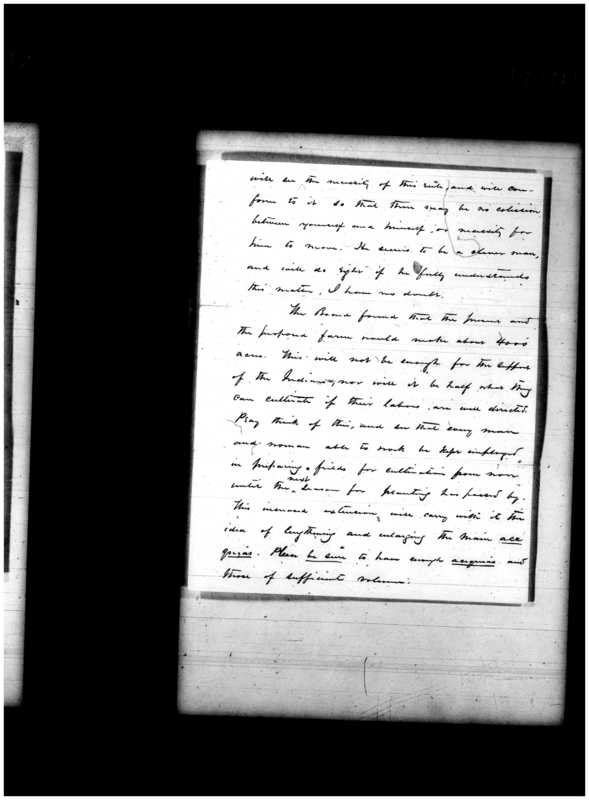 will see the necessity of this rule, and will con-
form to it so that there may be no collision
between yourself and himself, or necessity for
him to move. He seems to be a clever man,
and will do right if he fully understands
this matter, I have no doubt.
The Board found that the present and
the proposed farm would make about 4000
acres. This will not be enough for the support
of the Indians, nor will it be half what they
can cultivate if their labors are well directed.
Pray think of this, and see that every man
and woman able to work be kept employed,
in preparing fields for cultivation from now
until the next season for planting has passed by.
This increased extension, will carry with it the
idea of lengthening and enlarging the main ace
quias. Please be sure to have enough acequias and
those of sufficient volume.